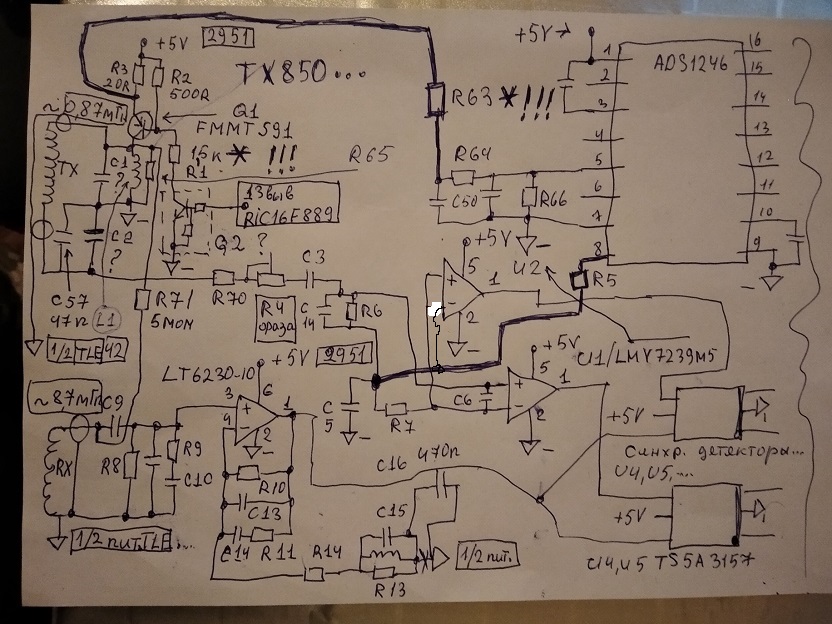 +5V 2951
+5V
ADS1246
R3
20R
R2
500R
TX850...
R63 * !!!
~0,87мГн
Q1
FMMT591
1,5к * !!!
R1
R65
TX
C1
?
C2
?
13 выв
PiC16F889
Q2
R64
C50
R66
1
2
3
4
5
6
7
8
16
15
14
13
12
11
10
9
+5V
U2
5
+
-
1
2
R5
C57
47n
L1
R71
5мом
R70
?
R4
фаза
C3
C
14
R6
1/2 TLE 42
+5V 2951
LT6230-10
+5V
U1/LMV7239M5
~8,7мГн
C9
RX
R8
R9
C10
3
4
+
-
6
1
2
C
5
R7
C6
+
-
5
1
2
+5V
Синхр. детекторы...
U4, U5,...
R10
C13
C14
R11
R14
C16
470n
C15
R13
1/2 пит.
+5V
1/2 пит. TLE...
U4, U5 TS5A3157